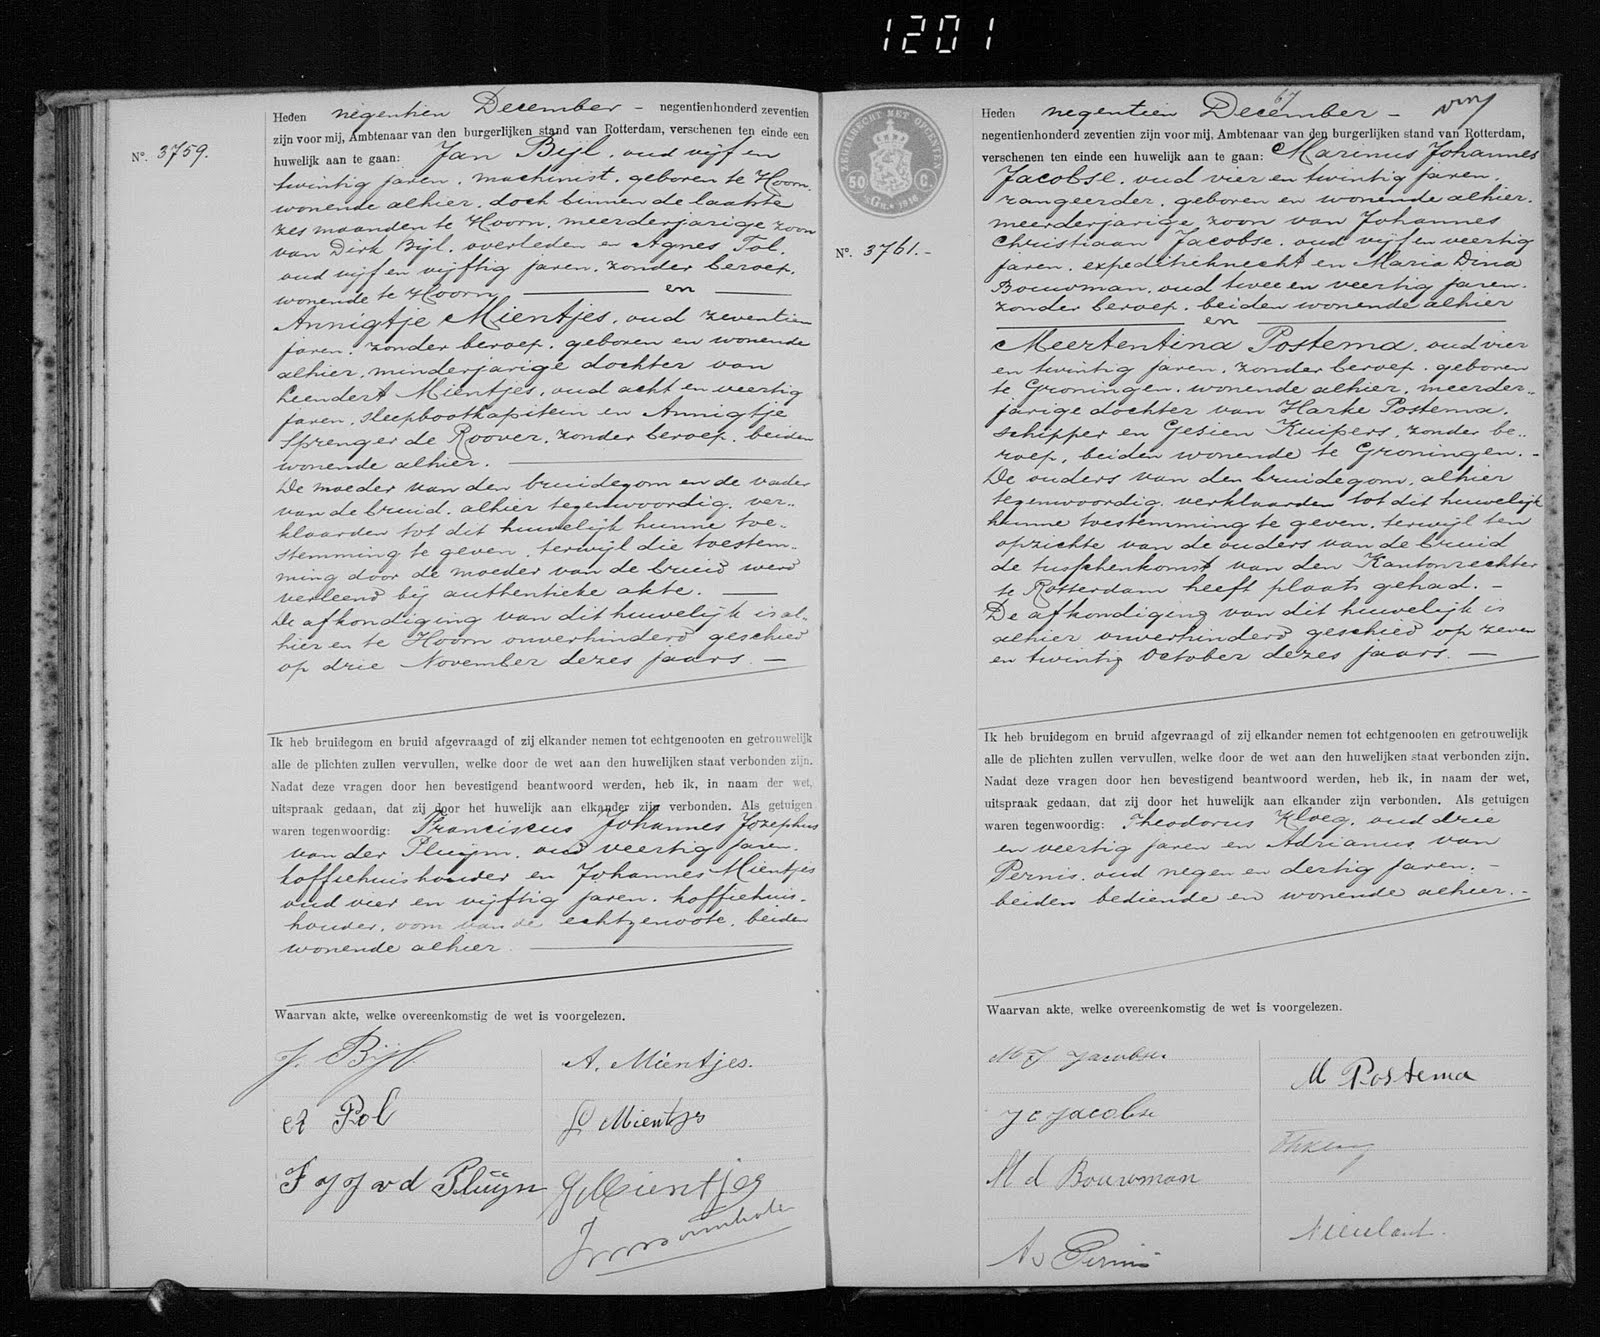 1201
Nº. 3759.
Heden negentien December - negentienhonderd zeventien
zijn voor mij, Ambtenaar van den burgerlijken stand van Rotterdam, verschenen ten einde een
huwelijk aan te gaan: Jan Bijl, oud vijf en
twintig jaren, machinist, geboren te Hoorn,
wonende alhier, doch binnen de laatste
zes maanden te Hoorn, meerderjarige zoon
van Dirk Bijl, overleden en Agnes Tol,
oud vijf en vijftig jaren, zonder beroep,
wonende te Hoorn en
Annigtje Mientjes, oud zeventien
jaren, zonder beroep, geboren en wonende
alhier, minderjarige dochter van
Leendert Mientjes, oud acht en veertig
jaren, sleepbootkapitein en Annigtje
Sprenger de Roover, zonder beroep, beiden
wonende alhier.
De moeder van den bruidegom en de vader
van de bruid, alhier tegenwoordig, ver-
klaarden tot dit huwelijk hunne toe-
stemming te geven, terwijl die toestem-
ming door de moeder van de bruid werd
verleend bij authentieke akte.
De afkondiging van dit huwelijk is al-
hier en te Hoorn onverhinderd geschied
op drie November dezes jaars.
Ik heb bruidegom en bruid afgevraagd of zij elkander nemen tot echtgenooten en getrouwelijk
alle de plichten zullen vervullen, welke door de wet aan den huwelijken staat verbonden zijn.
Nadat deze vragen door hen bevestigend beantwoord werden, heb ik, in naam der wet,
uitspraak gedaan, dat zij door het huwelijk aan elkander zijn verbonden. Als getuigen
waren tegenwoordig: Franciscus Johannes Jozephus
van der Pluijm, oud veertig jaren,
koffiehuishouder en Johannes Mientjes
oud vier en vijftig jaren, koffiehuis-
houder, oom van de echtgenoote, beiden
wonende alhier.
Waarvan akte, welke overeenkomstig de wet is voorgelezen.
J. Bijl
A. Mientjes.
A Pol
L Mientjes
F J J v d Pluijm
J Mientjes
ZEGELRECHT MET OPCENTEN
50 C.
1916
Nº. 3761.-
67
Heden negentien December -
negentienhonderd zeventien zijn voor mij, Ambtenaar van den burgerlijken stand van Rotterdam,
verschenen ten einde een huwelijk aan te gaan: Marinus Johannes
Jacobse, oud vier en twintig jaren,
rangeerder, geboren en wonende alhier,
meerderjarige zoon van Johannes
Christiaan Jacobse, oud vijf en veertig
jaren, expeditieknecht en Maria Dina
Bouwman, oud twee en veertig jaren,
zonder beroep, beiden wonende alhier
en
Meertentina Postema, oud vier
en twintig jaren, zonder beroep, geboren
te Groningen, wonende alhier, meerder-
jarige dochter van Harke Postema,
schipper en Gesien Kuipers, zonder be-
roep, beiden wonende te Groningen. -
De ouders van den bruidegom, alhier
tegenwoordig, verklaarden tot dit huwelijk
hunne toestemming te geven, terwijl ten
opzichte van de ouders van de bruid
de tusschenkomst van den Kantonrechter
te Rotterdam heeft plaats gehad. -
De afkondiging van dit huwelijk is
alhier onverhinderd geschied op zeven
en twintig October dezes jaars. -
Ik heb bruidegom en bruid afgevraagd of zij elkander nemen tot echtgenooten en getrouwelijk
alle de plichten zullen vervullen, welke door de wet aan den huwelijken staat verbonden zijn.
Nadat deze vragen door hen bevestigend beantwoord werden, heb ik, in naam der wet,
uitspraak gedaan, dat zij door het huwelijk aan elkander zijn verbonden. Als getuigen
waren tegenwoordig: Theodorus Kloeg, oud drie
en veertig jaren en Adrianus van
Pernis, oud negen en dertig jaren,
beiden bediende en wonende alhier. -
Waarvan akte, welke overeenkomstig de wet is voorgelezen.
M J Jacobse
M Postema
J C Jacobse
M d Bouwman
A v Pernis